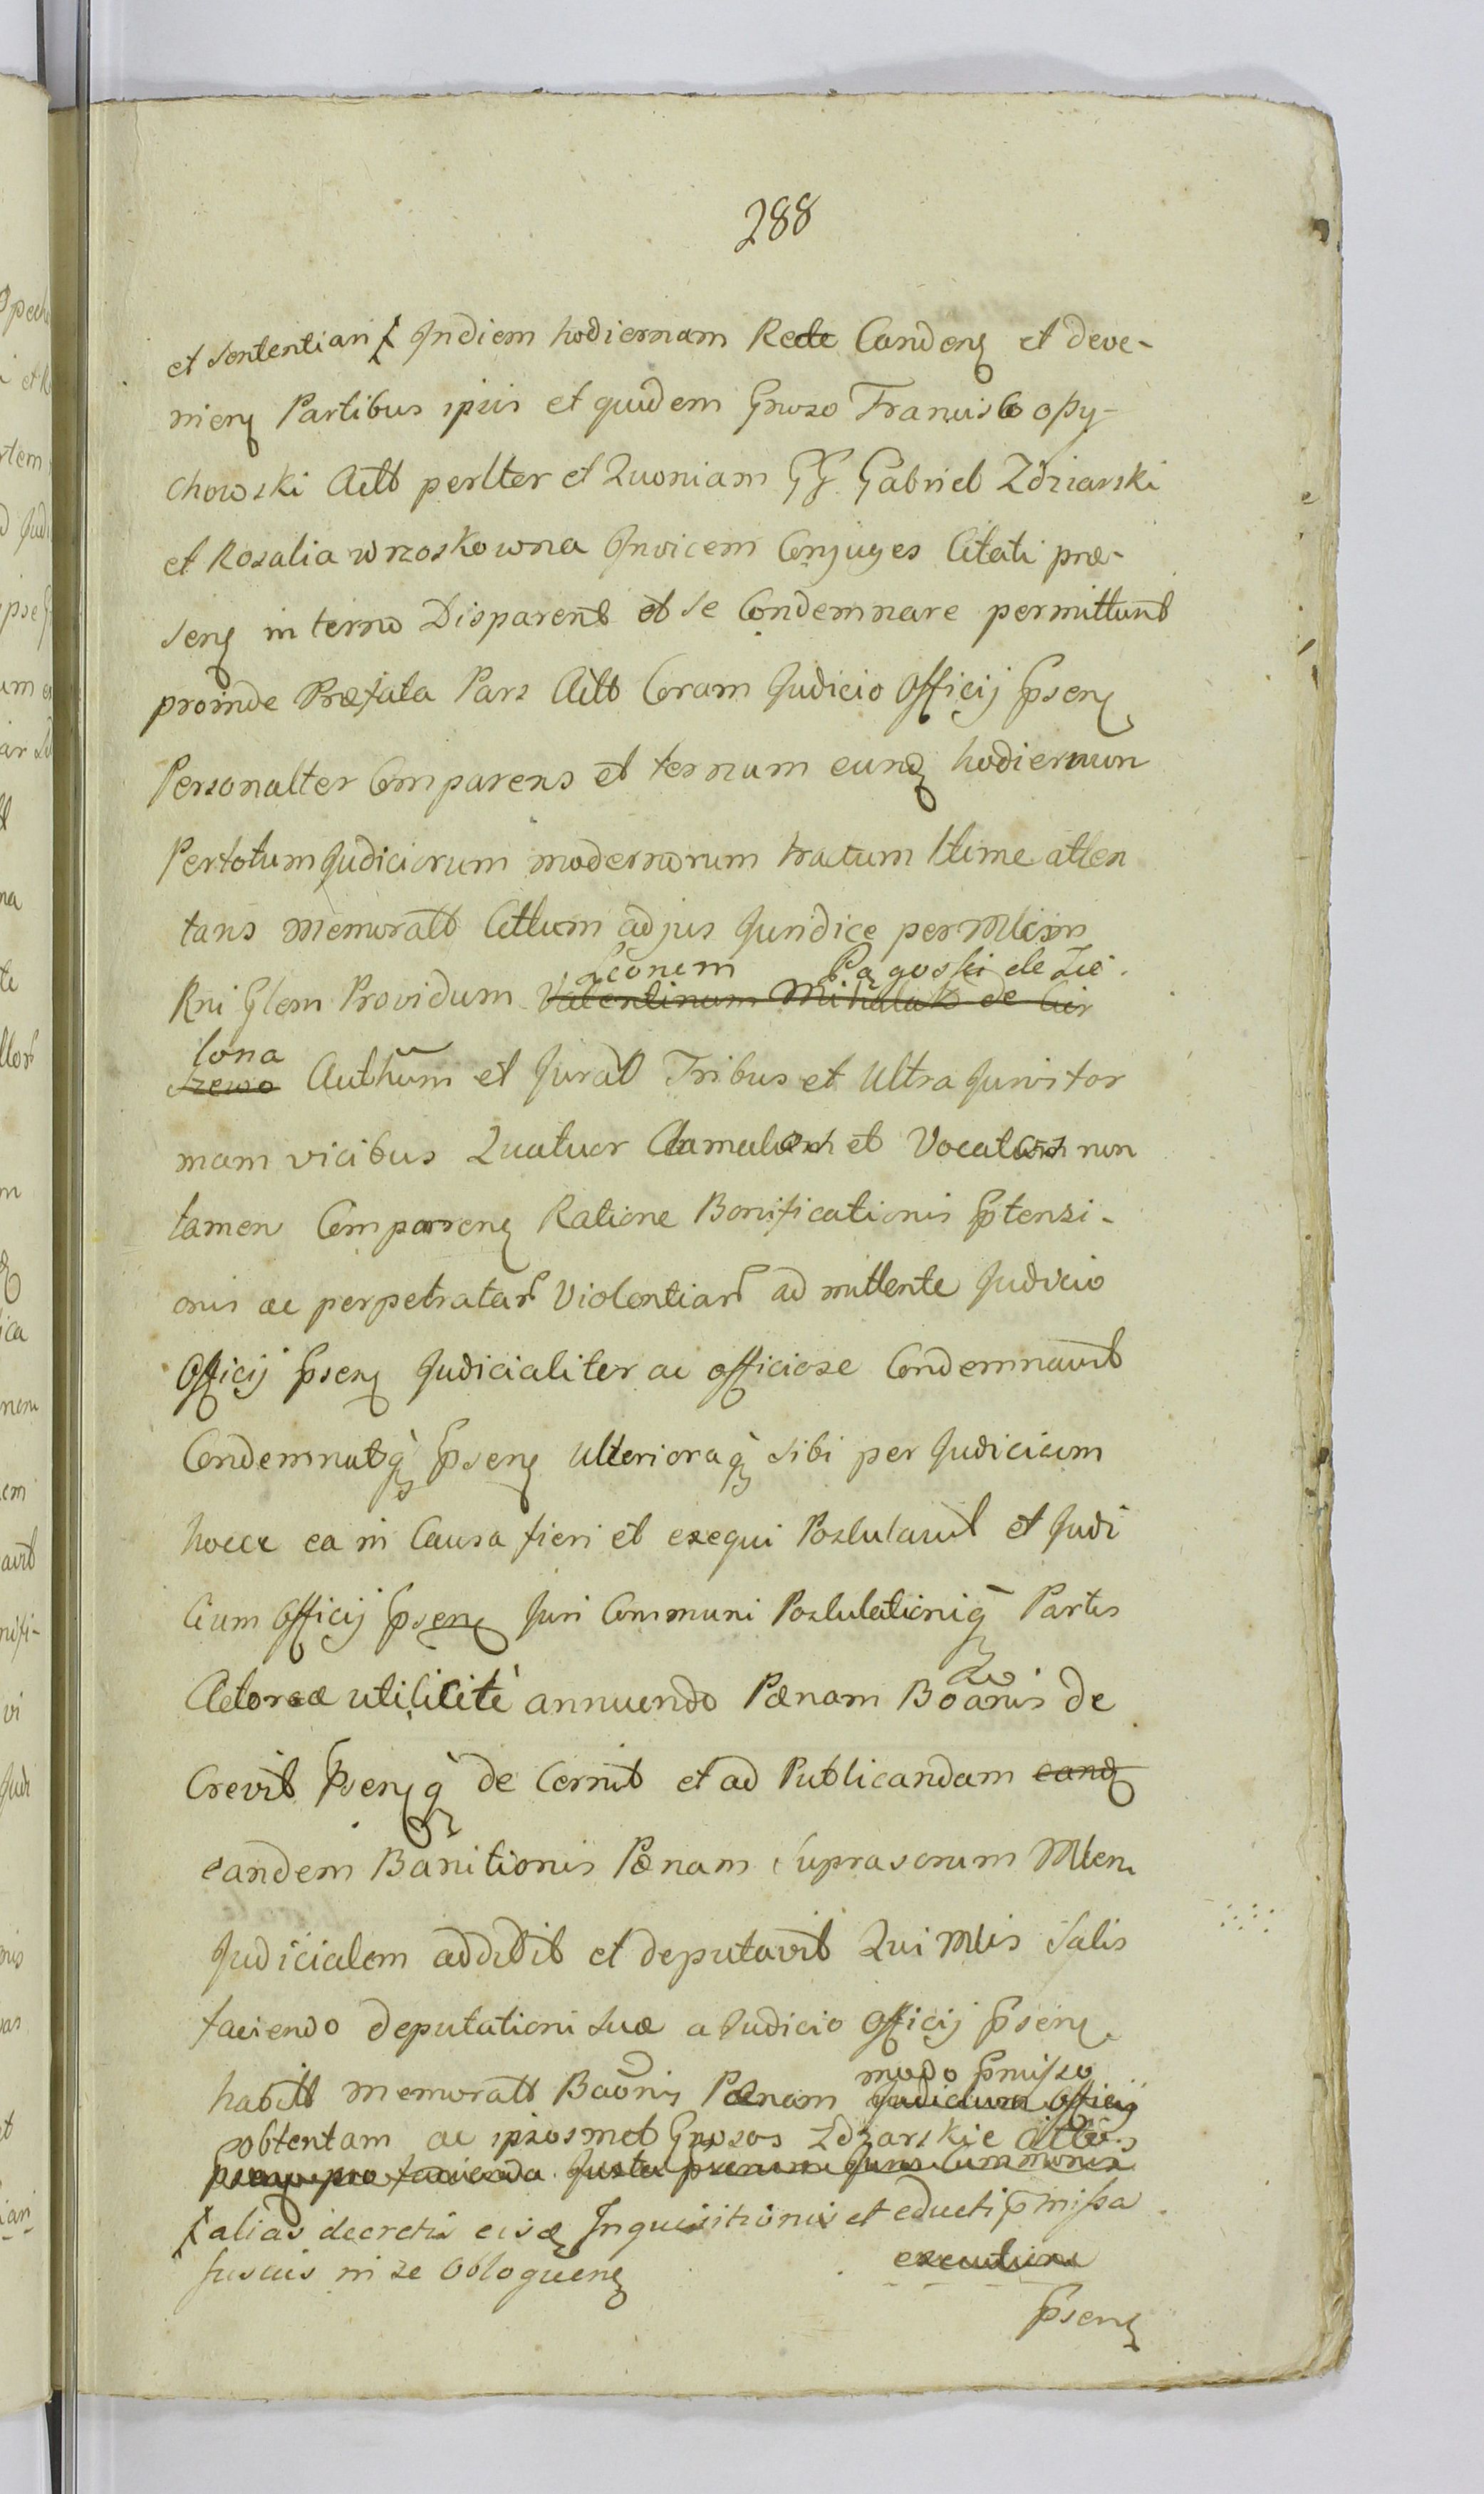 288
et sententiari Indiem hodiernam Rete Candenq et deve-
nienq Partibus ipsis et quidem Gnoso Francisco opy-
chowski Actt perltter et Quoniam GG Gabriel Zdziarski
et Rosalia wrzoskowna Invicem Conjuges Citati prae-
senq in termo Disparent et se Condemnare permittunt
proinde Praefata Pars Actt Coram Judicio Officij psenq
Personalter Comparens et ternum eunq hodiernum
Pertotum Judiciorum modernorum tractum ltime atten
tans memoratt Cittum ad jus Juridice per Mlem
Leonem Pągoski de Zie
Rni Glem Providum Valentinum Mihalak de Cie
lona
szewo Authum et Jurat Tribus et Ultra Juristor
mam vicibus Quatuor Clamatos et Vocatos non
tamen Comparenq Ratione Bonificationis ptensi-
onis ac perpetratar Violentiar ad mittente Judicio
Officij psenq Judicialiter ac officiose Condemnavit
Condemnatq psenq Ulterioraq sibi per Judicium
hocce ea in Causa fieri et exequi Postulavit et Judi
cium Officij psenq Juri Communi Postulationiq Partis
Actoreae utilicite annuendo Paenam Boanis de
Crevit psenq de Cernit et ad Publicandam eand
eandem Banitionis Paenam suprascrum Mlem
Judicialem addidit et deputavit Qui Mlis Satis
faciendo deputationi suae a Judicio Officij psenq
modo pmisso
habitt memoratt Baonis Paenam Judicium Officij
obtentam ac ipsosmet Gnosos Zdzarskie Citto.s
psenq pro facienda Justa
alias decretis eisq Inquisitionis et educti pmissa
fuscius in se Obloquenq
executione
psenq